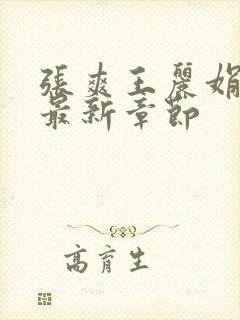 張爽王麗娟
最新章節
高育生